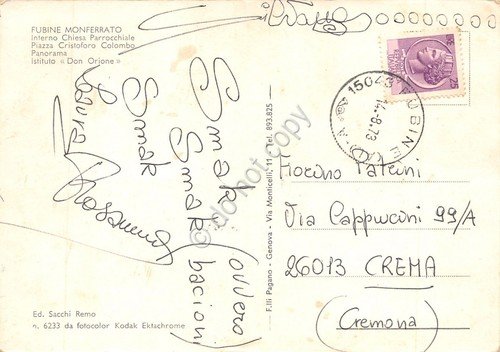 FUBINE MONFERRATO
Interno Chiesa Parrocchiale
Piazza Cristoforo Colombo
Panorama
Istituto « Don Orione »
Smak
Smak
Smak
(ovvero
bacioni)
Laura
Rosanna
15043 FUBINE (AL)
14.8.73
Fiorino Patrini
Via Cappuccini 99/A
26013 CREMA
(Cremona)
F.lli Pagano - Genova - Via Monticelli, 11 - Tel. 893.825
do not copy
Ed. Sacchi Remo
n. 6233 da fotocolor Kodak Ektachrome